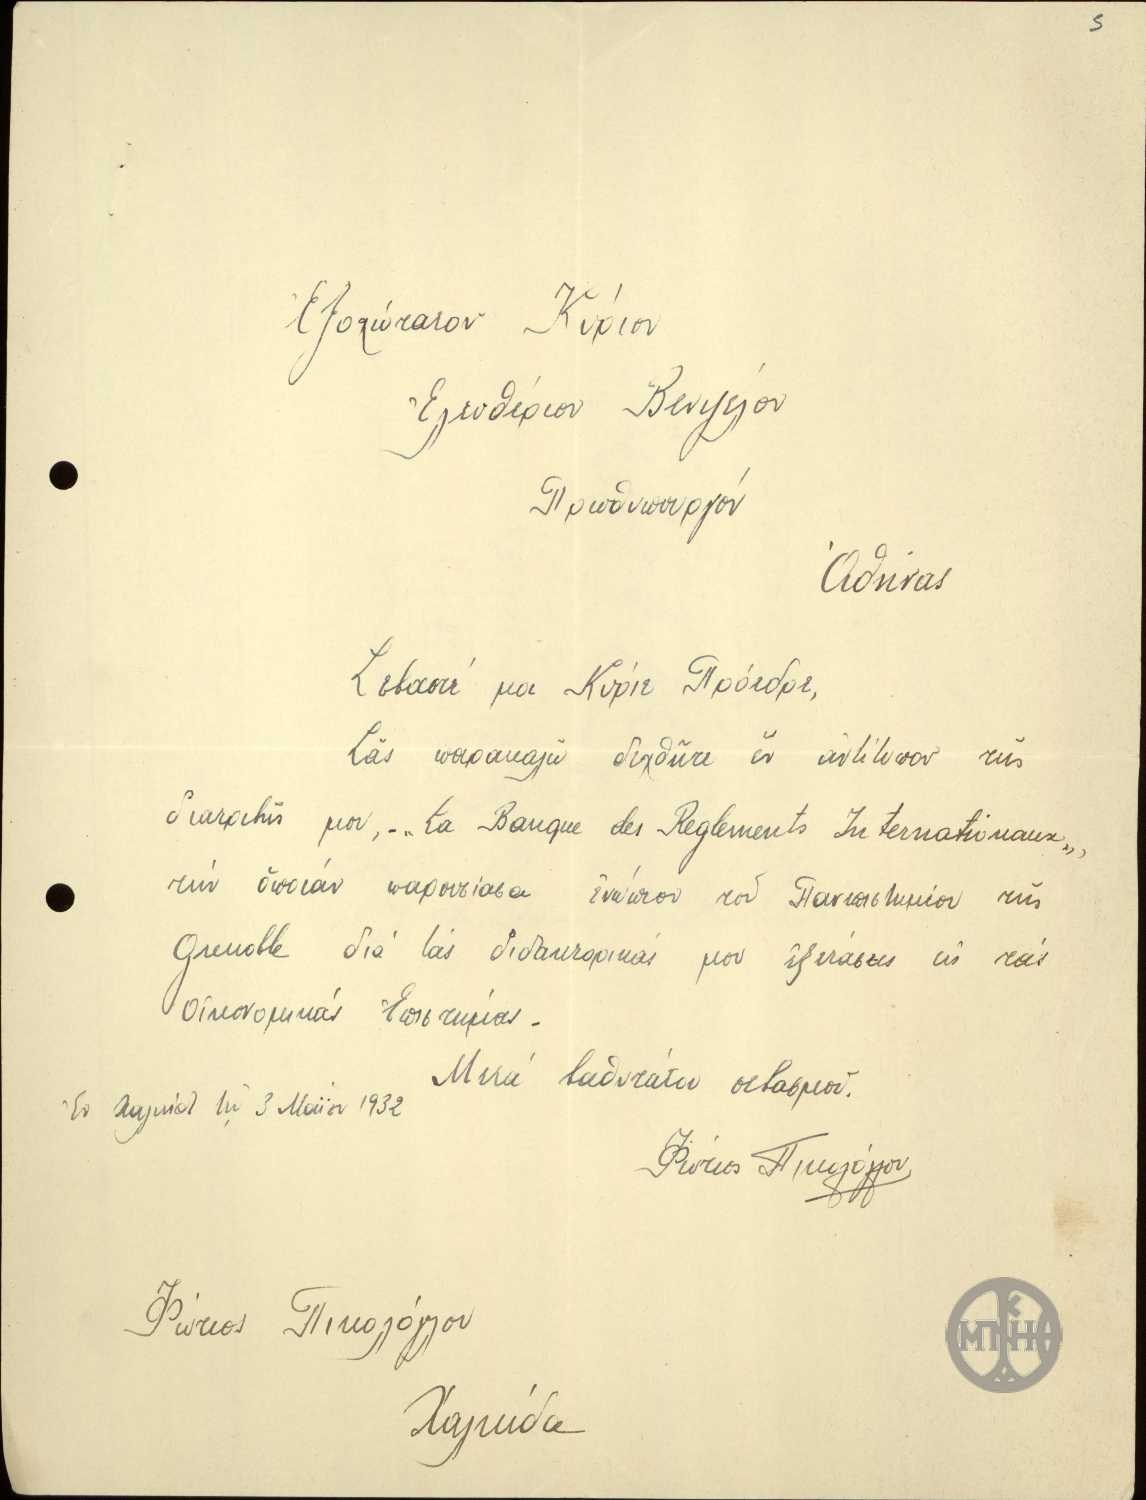 5
Ἐξοχώτατον Κύριον
Ἐλευθέριον Βενιζέλον
Πρωθυπουργόν
Ἀθήνας
Σεβαστέ μοι Κύριε Πρόεδρε,
Σᾶς παρακαλῶ δεχθῆτε ἕν ἀντίτυπον τῆς
διατριβῆς μου, -„ La Banque des Reglements Internationaux„,
τήν ὁποίαν παρουσίασα ἐνώπιον τοῦ Πανεπιστημίου τῆς
Grenoble διά τάς διδακτορικάς μου ἐξετάσεις εἰς τάς
Οἰκονομικάς Ἐπιστήμας. -
Μετά βαθυτάτου σεβασμοῦ.
Ἐν Χαλκίδι τῇ 3 Μαΐου 1932
Φώτιος Πικολόγλου
Φώτιος Πικολόγλου
Χαλκίδα
ΜΠΗΑ